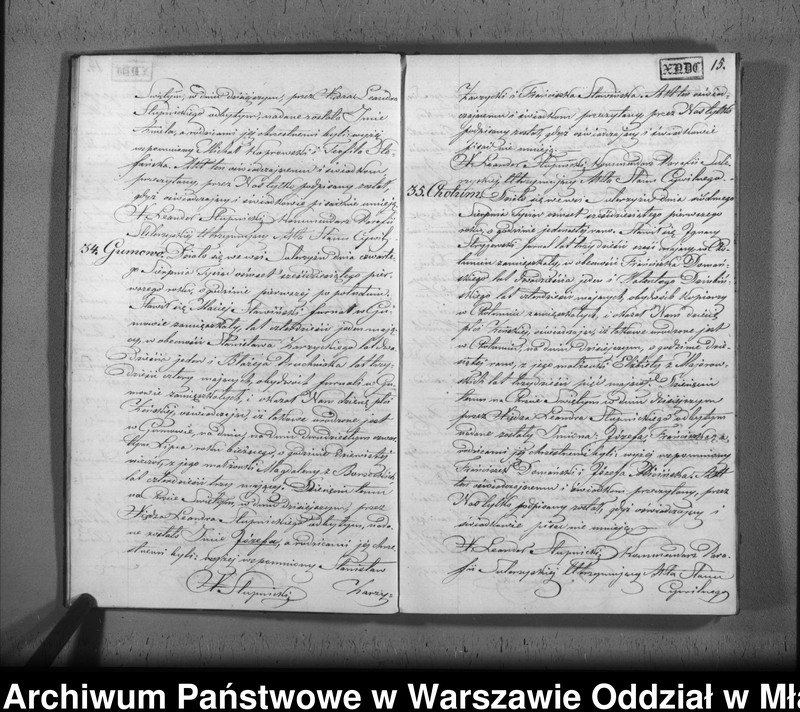 Świętym, w dniu dzisiejszym, przez Księdza Leandra
Słupnickiego odbytym, nadane zostało Imie
a rodzicami jéj chrzestnemi byli: wyżej
wspomniony Michał i Teofila
Akt ten oświadczającemu i świadkom
przeczytany, przez Nas tylko podpisany został,
gdyż oświadczający i świadkowie pisać nie umieją.
X. Leander Słupnicki Kommendarz Parafii
Utrzymujący Akta Stanu Cywil:
34. Gumowo. Działo się we wsi dnia czwarte-
go Sierpnia Tysiąc ośmset sześćdziesiątego pier-
wszego roku, o godzinie pierwszej po południu.
Stawił się Maciej fornal w Gu-
mowie zamieszkały, lat czterdzieści jeden mają-
cy, w obecności Stanisława lat dwa-
dzieścia jeden i Błażeja lat trzy-
dzieści cztery mających, obydwóch fornali w Gu-
mowie zamieszkałych, i okazał Nam dziecię płci
Żeńskiej, oświadczając, iż takowe urodzone jest
w Gumowie, na dniu dwudziestym czwar-
tym Lipca roku bieżącego, o godzinie dziewiątej
wieczór, z jego małżonki Magdaleny z
lat czterdzieści trzy mającej. Dziecięciu temu
na Chrzcie Świętym, w dniu dzisiejszym, przez
Księdza Leandra Słupnickiego odbytym, nada-
ne zostało Imie Józefa, a rodzicami jéj chrze-
stnemi byli: wyżej wspomniony Stanisław
X. Słupnicki
15.
i Franciszka Akt ten oświad-
czającemu i świadkom przeczytany, przez Nas tylko
podpisany został, gdyż oświadczający i świadkowie
pisać nie umieją.
X. Leander Słupnicki Kommendarz Parafii
Utrzymujący Akta Stanu Cywilnego.
35. Chotum. Działo się we wsi dnia siódmego
Sierpnia Tysiąc ośmset sześćdziesiątego pierwszego
roku, o godzinie jedenastej rano. Stawił się Ignacy
fornal lat trzydzieści sześć mający, w Cho-
tumiu zamieszkały, w obecności Franciszka Domań-
skiego lat dwadzieścia jeden i Walentego
lat czterdzieści mających, obydwóch
w Chotumiu zamieszkałych, i okazał Nam dziecię
płci Żeńskiej, oświadczając, iż takowe urodzone jest
w Chotumiu, na dniu dzisiejszym, o godzinie
rano, z jego małżonki Elżbiety z
lat trzydzieści pięć mającej. Dziecięciu
temu na Chrzcie Świętym, w dniu dzisiejszym
przez Księdza Leandra Słupnickiego odbytym
nadane zostały Imiona: Józefa Franciszka, a
rodzicami jéj chrzestnemi byli: wyżej wspomniony
Franciszek Domański i Józefa Akt
ten oświadczającemu i świadkom przeczytany, przez
Nas tylko podpisany został, gdyż oświadczający i
świadkowie pisać nie umieją.
X. Leander Słupnicki Kommendarz Para-
fii Utrzymujący Akta Stanu
Cywilnego
Archiwum Państwowe w Warszawie Oddział w Mła